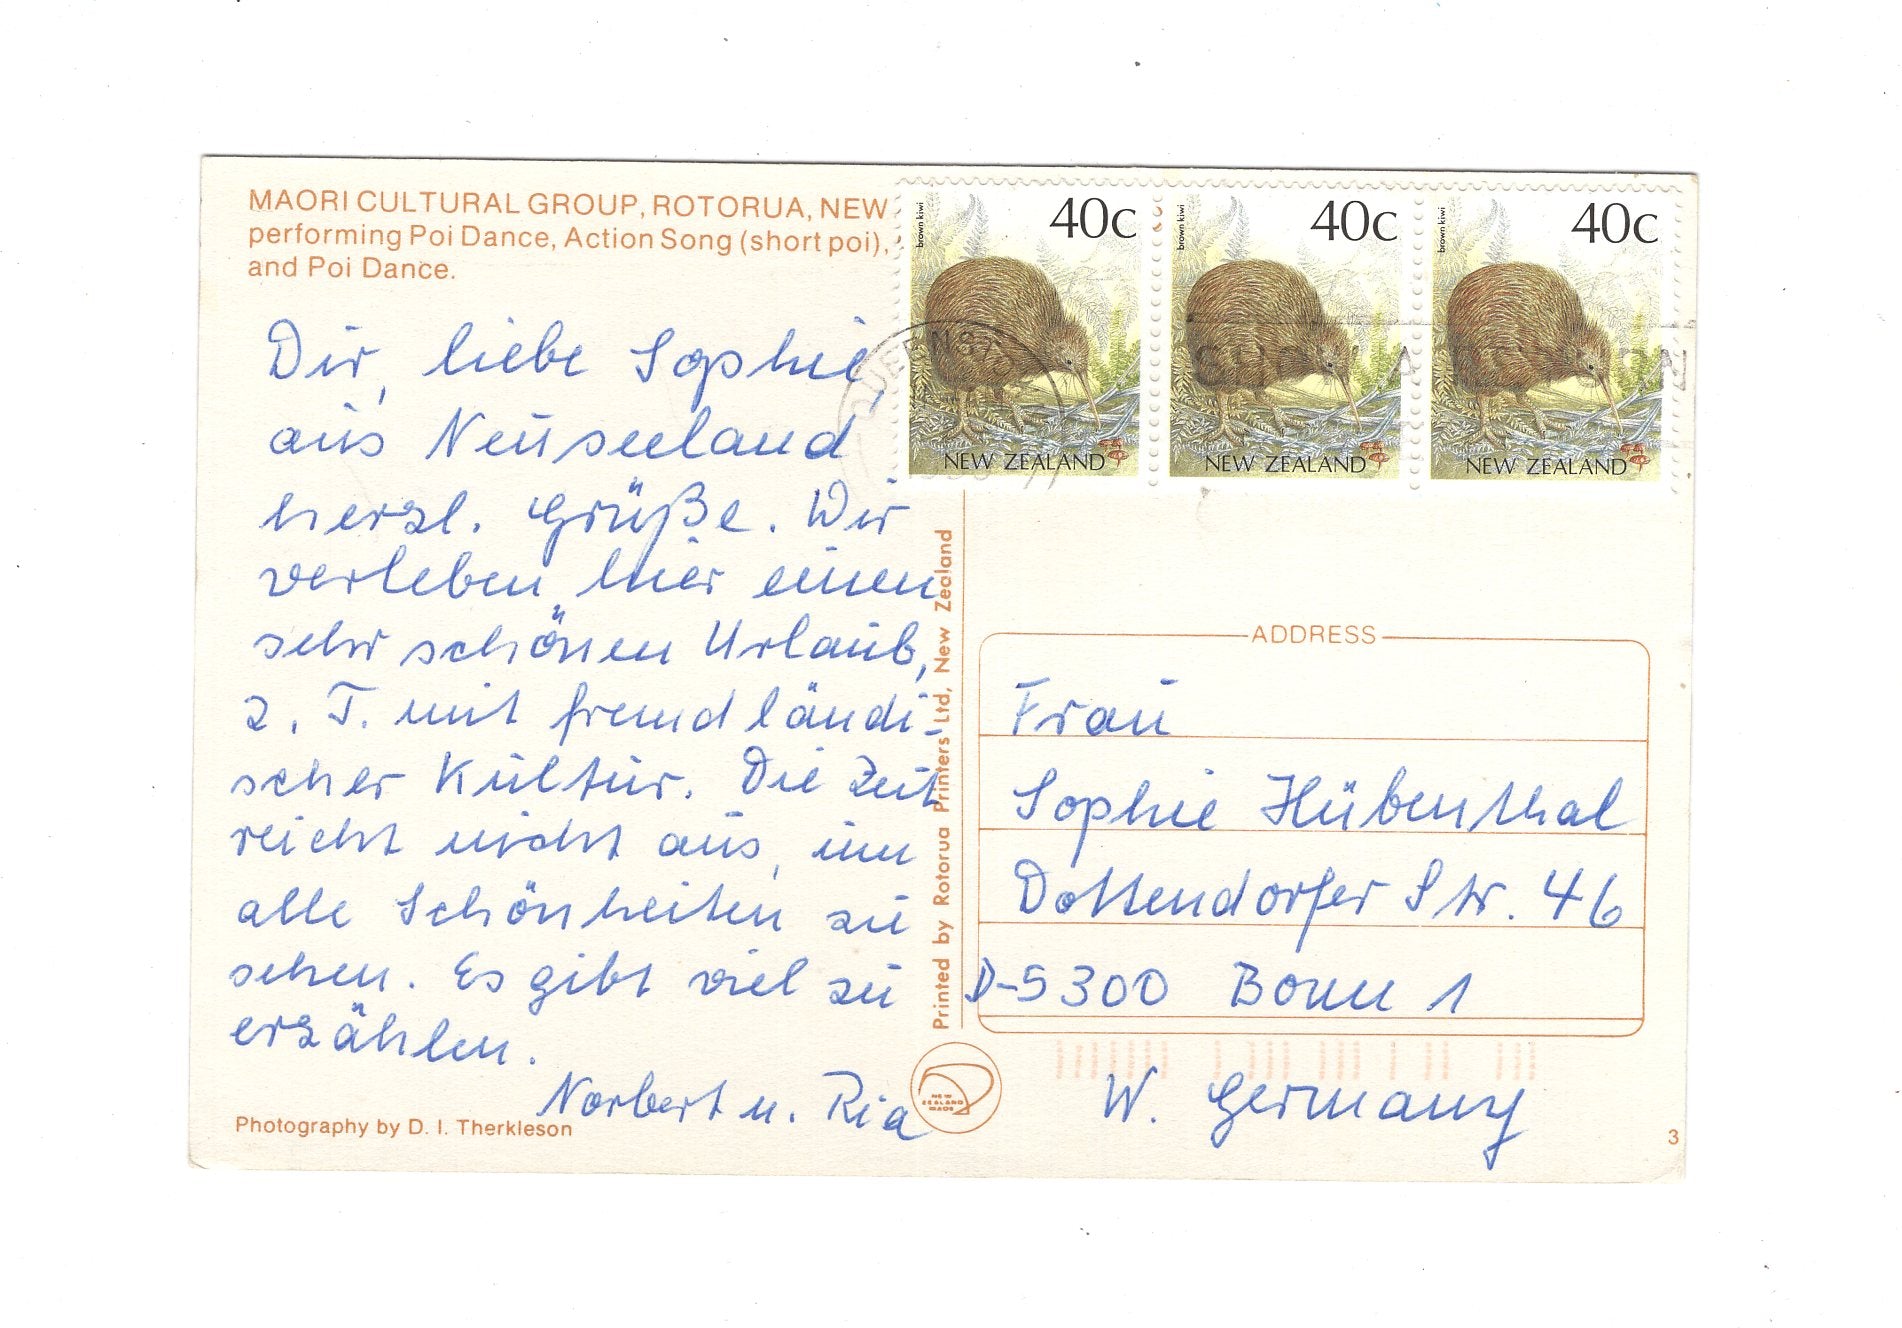 MAORI CULTURAL GROUP, ROTORUA, NEW
performing Poi Dance, Action Song (short poi),
and Poi Dance.
Dir, liebe Sophie,
aus Neuseeland
herzl. Grüße. Wir
verleben hier einen
sehr schönen Urlaub,
z. T. mit fremdländi-
scher Kultur. Die Zeit
reicht nicht aus, um
alle Schönheiten zu
sehen. Es gibt viel zu
erzählen.
Norbert u. Ria
Photography by D. I. Therkleson
Printed by Rotorua Printers Ltd, New Zealand
NEW ZEALAND MADE
brown kiwi
40c
NEW ZEALAND
brown kiwi
40c
NEW ZEALAND
brown kiwi
40c
NEW ZEALAND
ADDRESS
Frau
Sophie Hübenthal
Dottendorfer Str. 46
D-5300 Bonn 1
W. Germany
3